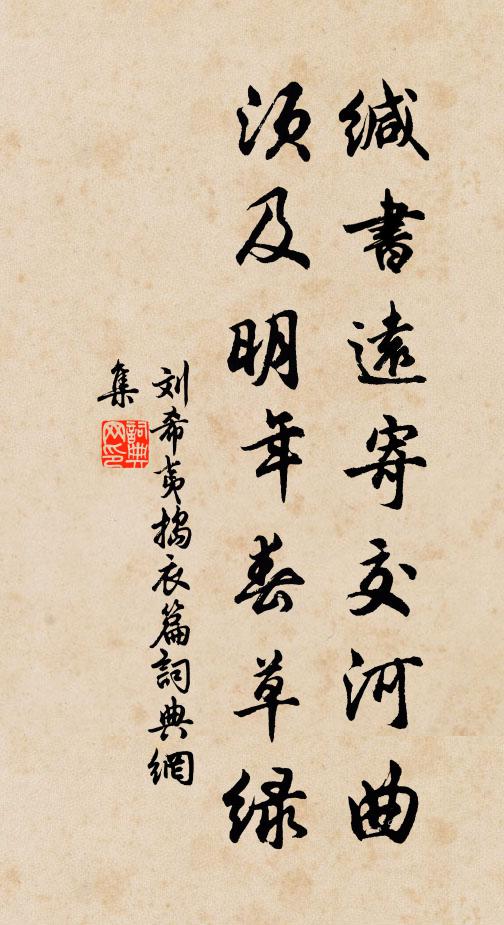 缄書遠寄交河曲
须及明年春草绿
刘希夷搗衣篇詞典網
集
詞典网印